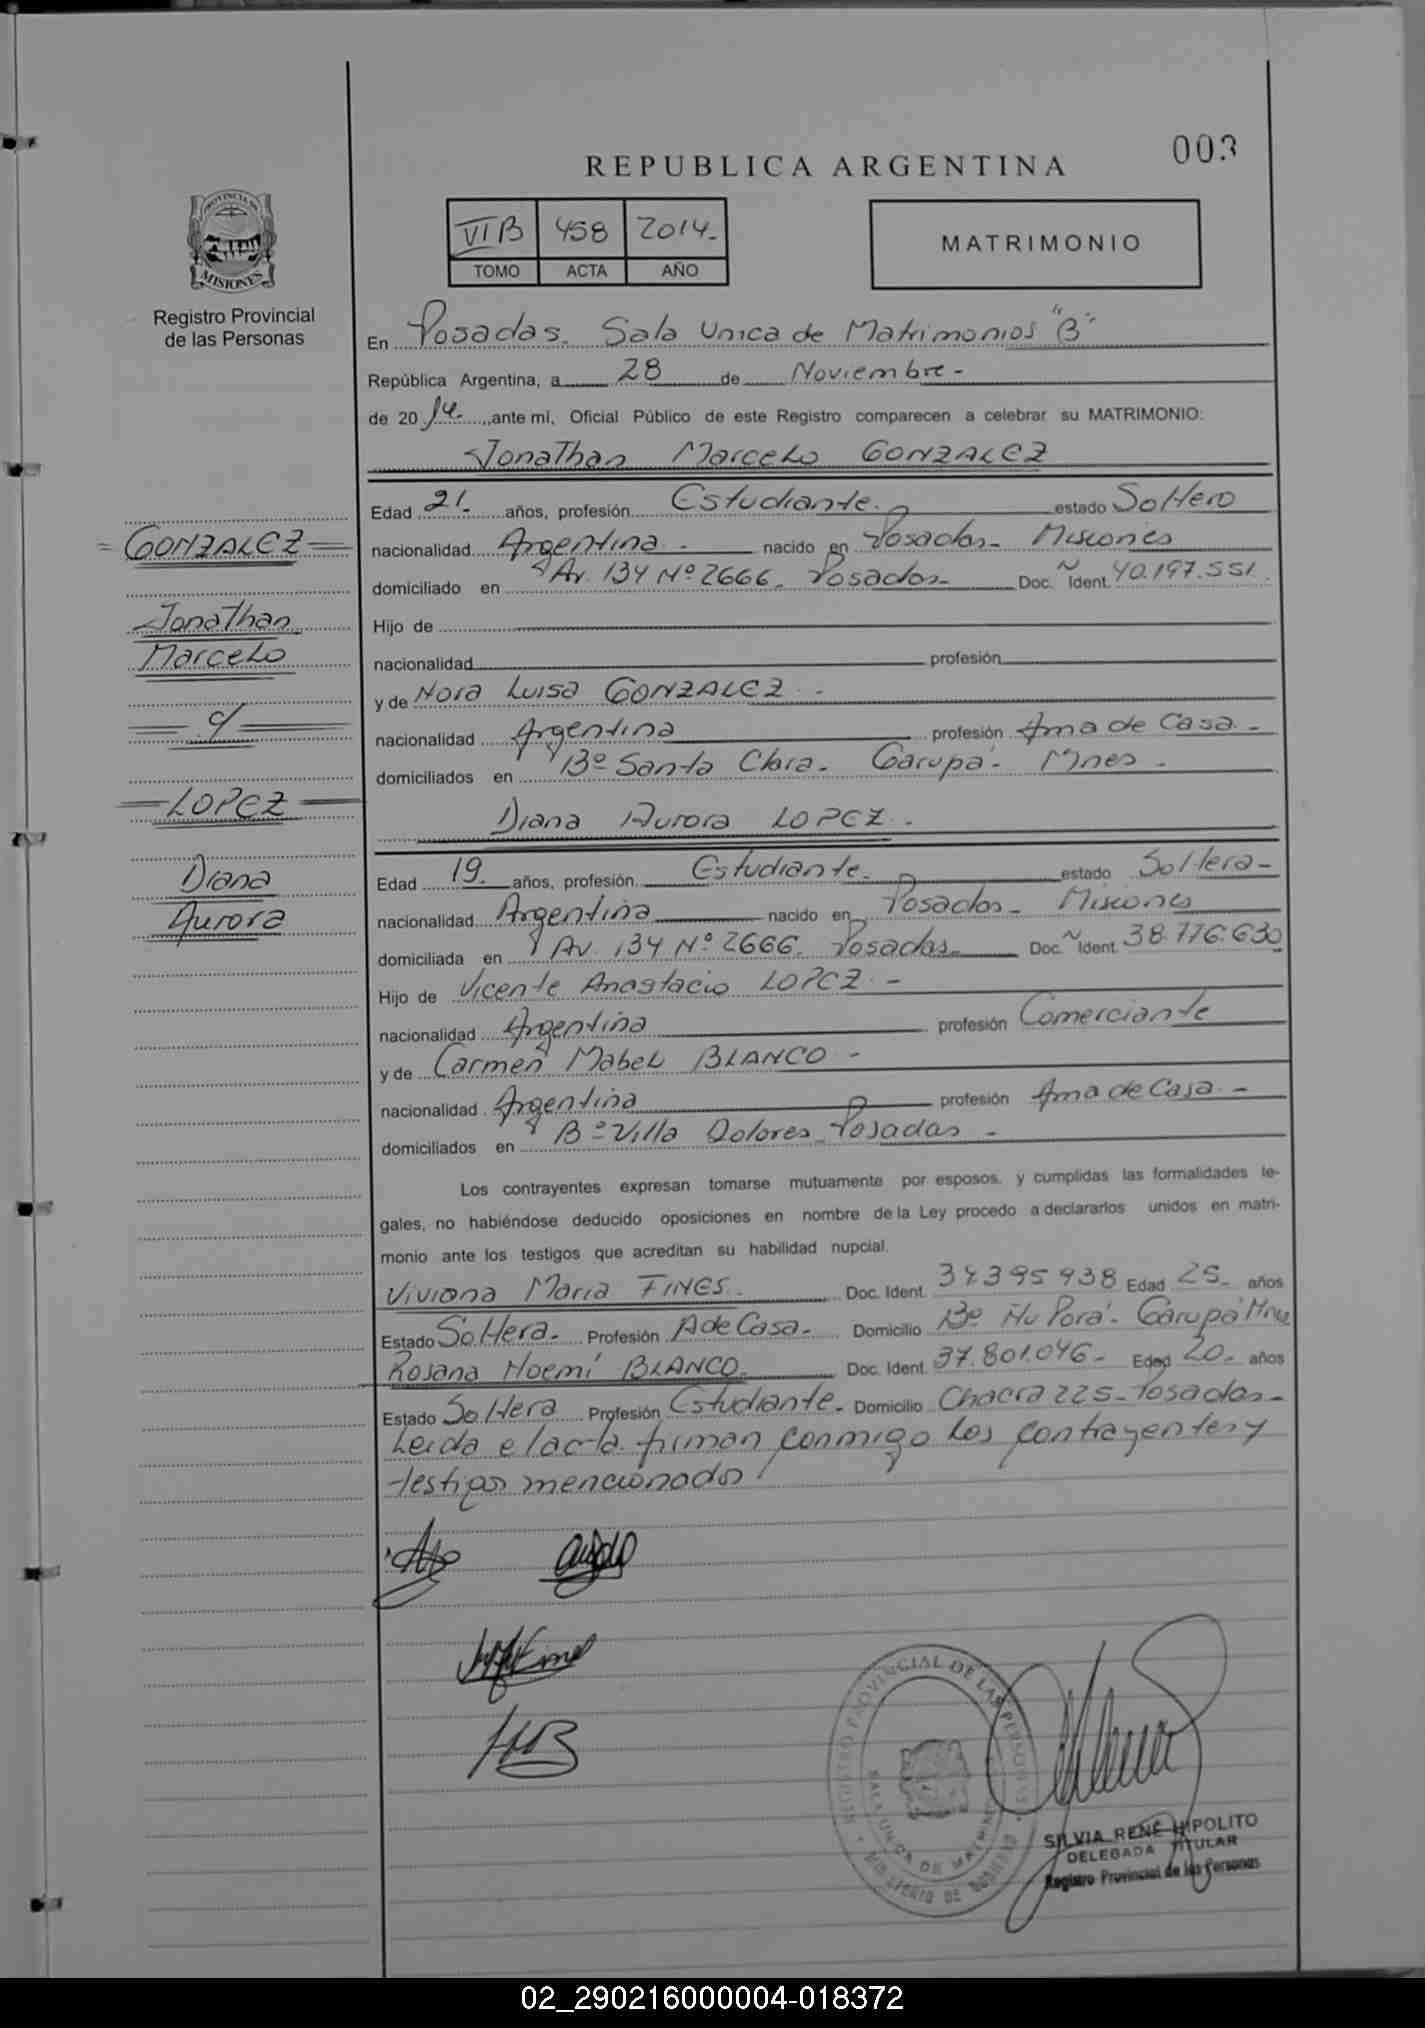 003
REPUBLICA ARGENTINA
PROVINCIA DE
MISIONES
Registro Provincial
de las Personas
VI B 458 2014.-
TOMO ACTA AÑO
MATRIMONIO
En Posadas. Sala Unica de Matrimonios "B"
República Argentina, a 28 de Noviembre -
de 20 14.- ,,ante mi, Oficial Público de este Registro comparecen a celebrar su MATRIMONIO:
Jonathan Marcelo GONZALEZ
Edad 21.- años, profesión Estudiante.- estado Soltero
= GONZALEZ =
nacionalidad Argentina - nacido en Posadas - Misiones
domiciliado en Av. 134 Nº 2666. Posadas - Doc. Ident. 40.197.551.
Jonathan
Hijo de
Marcelo
nacionalidad profesión
y de Nora Luisa GONZALEZ.-
c/
nacionalidad Argentina profesión Ama de Casa -
domiciliados en Bº Santa Clara - Garupá - Mnes -
= LOPEZ =
Diana Aurora LOPEZ.-
Diana
Edad 19.- años, profesión Estudiante.- estado Soltera -
Aurora
nacionalidad Argentina nacido en Posadas - Misiones
domiciliada en Av. 134 Nº 2666. Posadas - Doc. Ident. 38.776.630
Hijo de Vicente Anastacio LOPEZ.-
nacionalidad Argentina profesión Comerciante
y de Carmen Mabel BLANCO -
nacionalidad Argentina profesión Ama de Casa.-
domiciliados en Bº Villa Dolores Posadas -
Los contrayentes expresan tomarse mutuamente por esposos, y cumplidas las formalidades le-
gales, no habiéndose deducido oposiciones en nombre de la Ley procedo a declararlos unidos en matri-
monio ante los testigos que acreditan su habilidad nupcial.
Viviana Maria FINES.- Doc. Ident. 34395938 Edad 25- años
Estado Soltera.- Profesión A de Casa.- Domicilio Bº Ñu Porá - Garupá Mnes
Rosana Noemí BLANCO Doc. Ident. 37.801.046 - Edad 20- años
Estado Soltera Profesión Estudiante - Domicilio Chacra 225 - Posadas -
Leida el acta firman conmigo los contrayentes y
testigos mencionados
REGISTRO PROVINCIAL DE LAS PERSONAS
SALA UNICA DE MATRIMONIOS
MINISTERIO DE GOBIERNO
SILVIA RENÉ HIPOLITO
DELEGADA TITULAR
Registro Provincial de las Personas
02_290216000004-018372